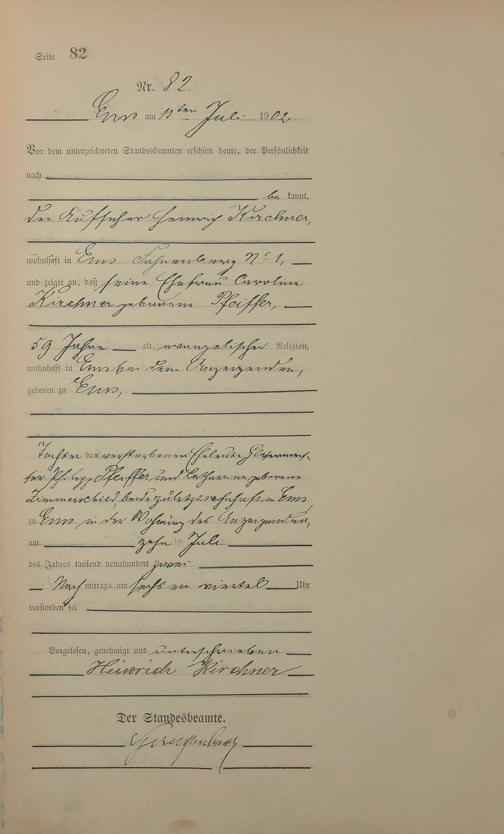 Seite 82
Nr. 82.
Ems am 11ten Juli 1902
Vor dem unterzeichneten Standesbeamten erschien heute, der Persönlichkeit
nach
be kannt,
der Aufseher Heinrich Kirchner,
wohnhaft in Ems Fahnenberg No 1,
und zeigte an, daß seine Ehefrau Caroline
Kirchner geborene Pfeiffer,
59 Jahre alt, evangelischer Religion,
wohnhaft in Ems bei dem Anzeigenden,
geboren zu Ems,
Tochter der verstorbenen Eheleute
Philipp Pfeiffer und Catharine geborene
Zimmerschied, beide zuletzt wohnhaft in Ems
zu Ems in der Wohnung des Anzeigenden,
am zehn ten Juli
des Jahres tausend neunhundert zwei
Nach mittags um sechs ein viertel Uhr
verstorben sei.
Vorgelesen, genehmigt und unterschrieben
Heinrich Kirchner
Der Standesbeamte.